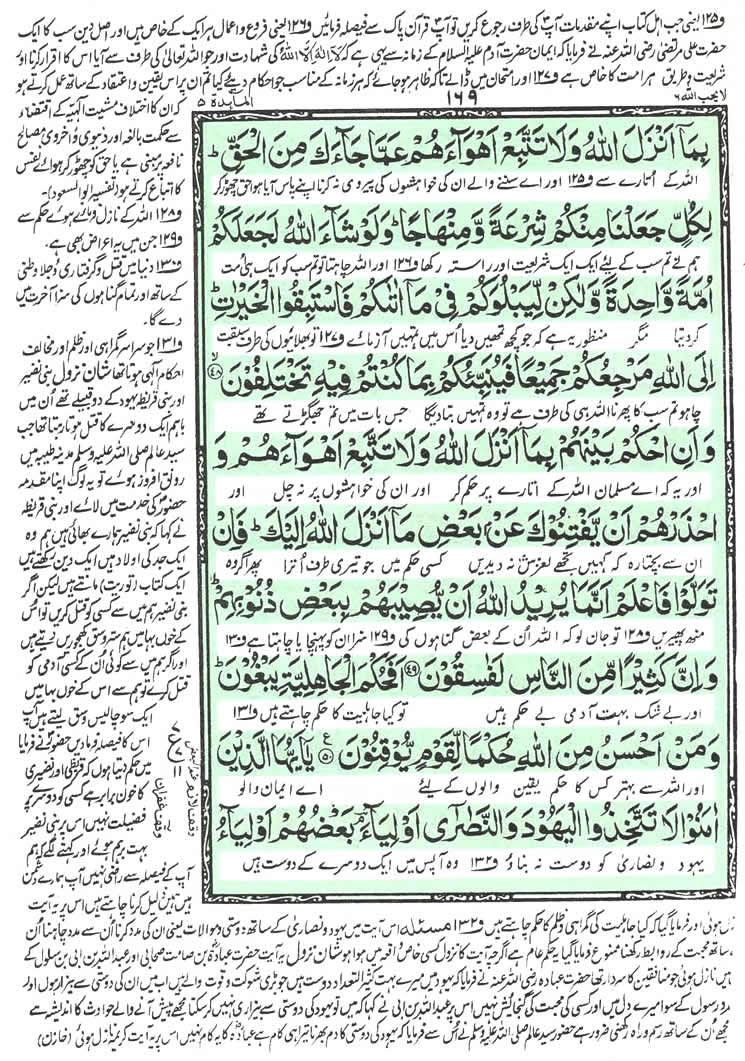 و۱۲۵ یعنی جب اہل کتاب اپنے مقدمات آپ کی طرف رجوع کریں تو آپ قرآن پاک سے فیصلہ فرمائیں و۱۲۶ یعنی فروع و اعمال ہر ایک کے خاص ہیں اور اصل دین سب کا ایک
حضرت علی مرتضیٰ رضی اللہ عنہ نے فرمایا کہ ایمان حضرت آدم علیہ السلام کے زمانہ سے یہی ہے کہ لَآ اِلٰہَ اِلَّا اللہُ کی شہادت اور جو اللہ تعالیٰ کی طرف سے آیا اس کا اقرار کرنا اور
شریعت و طریق ہر امت کا خاص ہے و۱۲۷ اور امتحان میں ڈالے تاکہ ظاہر ہو جائے کہ ہر زمانہ کے مناسب جو احکام دیئے کیا تم ان پر اس یقین و اعتقاد کے ساتھ عمل کرتے ہو
لا یحب اللہ ۶
۱۶۹
المآئدۃ ۵
بِمَاۤ اَنْزَلَ اللّٰهُ وَلَا تَتَّبِعْ اَهْوَآءَهُمْ عَمَّا جَآءَكَ مِنَ الْحَقِّؕ
اللہ کے اتارے سے و۱۲۵ اور اے سننے والے ان کی خواہشوں کی پیروی نہ کرنا اپنے پاس آیا ہوا حق چھوڑ کر
لِكُلٍّ جَعَلْنَا مِنْكُمْ شِرْعَةً وَّمِنْهَاجًاؕ وَلَوْ شَآءَ اللّٰهُ لَجَعَلَكُمْ
ہم نے تم سب کے لیے ایک ایک شریعت اور راستہ رکھا و۱۲۶ اور اللہ چاہتا تو تم سب کو ایک ہی امت
اُمَّةً وَّاحِدَةً وَّلٰكِنْ لِّیَبْلُوَكُمْ فِیْ مَاۤ اٰتٰىكُمْ فَاسْتَبِقُوا الْخَیْرٰتِؕ
کردیتا مگر منظور یہ ہے کہ جو کچھ تمہیں دیا اُس میں تمہیں آزمائے و۱۲۷ تو بھلائیوں کی طرف سبقت
اِلَى اللّٰهِ مَرْجِعُكُمْ جَمِیْعًا فَیُنَبِّئُكُمْ بِمَا كُنْتُمْ فِیْهِ تَخْتَلِفُوْنَۙ۴۸
چاہو تم سب کا پھرنا اللہ ہی کی طرف ہے تو وہ تمہیں بتادیگا جس بات میں تم جھگڑتے تھے
وَاَنِ احْكُمْ بَیْنَهُمْ بِمَاۤ اَنْزَلَ اللّٰهُ وَلَا تَتَّبِعْ اَهْوَآءَهُمْ وَ
اور یہ کہ اے مسلمان اللہ کے اتارے پر حکم کر اور ان کی خواہشوں پر نہ چل اور
احْذَرْهُمْ اَنْ یَّفْتِنُوْكَ عَنْۢ بَعْضِ مَاۤ اَنْزَلَ اللّٰهُ اِلَیْكَؕ فَاِنْ
ان سے بچتا رہ کہ کہیں تجھے لغزش نہ دیدیں کسی حکم میں جو تیری طرف اُترا پھر اگر وہ
تَوَلَّوْا فَاعْلَمْ اَنَّمَا یُرِیْدُ اللّٰهُ اَنْ یُّصِیْبَهُمْ بِبَعْضِ ذُنُوْبِهِمْؕ
منھ پھیریں و۱۲۸ تو جان لو کہ اللہ اُن کے بعض گناہوں کی و۱۲۹ سزا ان کو پہنچایا چاہتا ہے و۱۳۰
وَاِنَّ كَثِیْرًا مِّنَ النَّاسِ لَفٰسِقُوْنَ۴۹ اَفَحُكْمَ الْجَاهِلِیَّةِ یَبْغُوْنَؕ
اور بے شک بہت آدمی بے حکم ہیں تو کیا جاہلیت کا حکم چاہتے ہیں و۱۳۱
وَمَنْ اَحْسَنُ مِنَ اللّٰهِ حُكْمًا لِّقَوْمٍ یُّوْقِنُوْنَ۠۵۰ یٰۤاَیُّهَا الَّذِیْنَ
اور اللہ سے بہتر کس کا حکم یقین والوں کے لیئے اے ایمان والو
اٰمَنُوْا لَا تَتَّخِذُوا الْیَهُوْدَ وَالنَّصٰرٰۤى اَوْلِیَآءَ ؔۘ بَعْضُهُمْ اَوْلِیَآءُ
یہود و نصاریٰ کو دوست نہ بناؤ و۱۳۲ وہ آپس میں ایک دوسرے کے دوست ہیں
کہ ان کا اختلاف مشیت الٰہیہ کے اقتضاء
سے حکمت بالغہ اور دنیوی و اخروی مصالح
نافعہ پر مبنی ہے یا حق کو چھوڑ کر ہوائے نفس
کا اتباع کرتے ہو (تفسیر ابوالسعود)۔
و۱۲۸ اللہ کے نازل فرمائے ہوئے حکم سے
و۱۲۹ جن میں یہ اعراض بھی ہے۔
و۱۳۰ دنیا میں قتل و گرفتاری و جلا وطنی
کے ساتھ اور تمام گناہوں کی سزا آخرت میں
دے گا۔
و۱۳۱ جو سراسر گمراہی اور ظلم اور مخالف
احکام الٰہی ہوتا تھا شان نزول بنی نضیر
اور بنی قریظہ یہود کے دو قبیلے تھے اُن میں
باہم ایک دوسرے کا قتل ہوتا رہتا تھا جب
سید عالم صلی اللہ علیہ وسلم مدینہ طیبہ میں
رونق افروز ہوئے تو یہ لوگ اپنا مقدمہ
حضور کی خدمت میں لائے اور بنی قریظہ
نے کہا کہ بنی نضیر ہمارے بھائی ہیں ہم وہ
ایک جد کی اولاد ہیں ایک دین رکھتے ہیں
ایک کتاب (توریت) مانتے ہیں لیکن اگر
بنی نضیر ہم میں سے کسی کو قتل کریں تو اس
کے خوں بہا میں ہم ستر وسق کھجوریں دیتے ہیں
اور اگر ہم میں سے کوئی اُن کے کسی آدمی کو
قتل کرے تو ہم سے اس کے خوں بہا میں
ایک سو چالیس وسق لیتے ہیں آپ
اس کا فیصلہ فرمادیں حضور نے فرمایا
میں حکم دیتا ہوں کہ قرظی اور نضیری
کا خون برابر ہے کسی کو دوسرے پر
فضیلت نہیں اس پر بنی نضیر
بہت برہم ہوئے اور کہنے لگے کہ ہم
آپ کے فیصلہ سے راضی نہیں آپ ہمارے دشمن
ہیں ہمیں ذلیل کرنا چاہتے ہیں اس پر یہ آیت
وقف لازم
وقف غفران
نازل ہوئی اور فرمایا گیا کہ کیا جاہلیت کی گمراہی و ظلم کا حکم چاہتے ہیں و۱۳۲ مسئلہ اس آیت میں یہود و نصاریٰ کے ساتھ دوستی و موالات یعنی ان کی مدد کرنا اُن سے مدد چاہنا اُن
کے ساتھ محبت کے روابط رکھنا ممنوع فرمایا گیا یہ حکم عام ہے اگرچہ آیت کا نزول کسی خاص واقعہ میں ہوا ہو شان نزول یہ آیت حضرت عبادہ بن صامت صحابی اور عبداللہ بن ابی بن سلول کے
حق میں نازل ہوئی جو منافقین کا سردار تھا حضرت عبادہ رضی اللہ عنہ نے فرمایا کہ یہود میں میرے بہت کثیر التعداد دوست ہیں جو بڑی شوکت و قوت والے ہیں اب میں ان کی دوستی سے بیزار ہوں اور
اللہ و رسول کے سوا میرے دل میں اور کسی کی محبت کی گنجائش نہیں اس پر عبداللہ بن ابی نے کہا کہ میں تو یہود کی دوستی سے بیزاری نہیں کرسکتا مجھے پیش آنے والے حوادث کا اندیشہ ہے
مجھے اُن کے ساتھ رسم و راہ رکھنی ضرور ہے حضور سید عالم صلی اللہ علیہ وسلم نے اُس سے فرمایا کہ یہود کی دوستی کا دم بھرنا تیرا ہی کام ہے عبادہ کا یہ کام نہیں اس پر یہ آیت کریمہ نازل ہوئی (خازن)